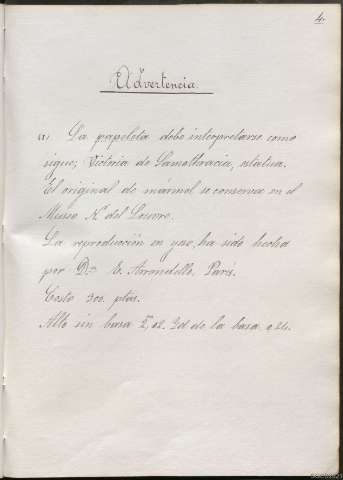 4.
Advertencia.
(a). La papeleta debe interpretarse como
sigue; Victoria de Samothracia, estatua.
El original de mármol se conserva en el
Museo Nl. del Louvre.
La reproducción en yeso, ha sido hecha
por Dn. E. Arrondelle. París.
Costo 300. ptas.
Alto sin basa 2,02. Id. de la basa 0,24.